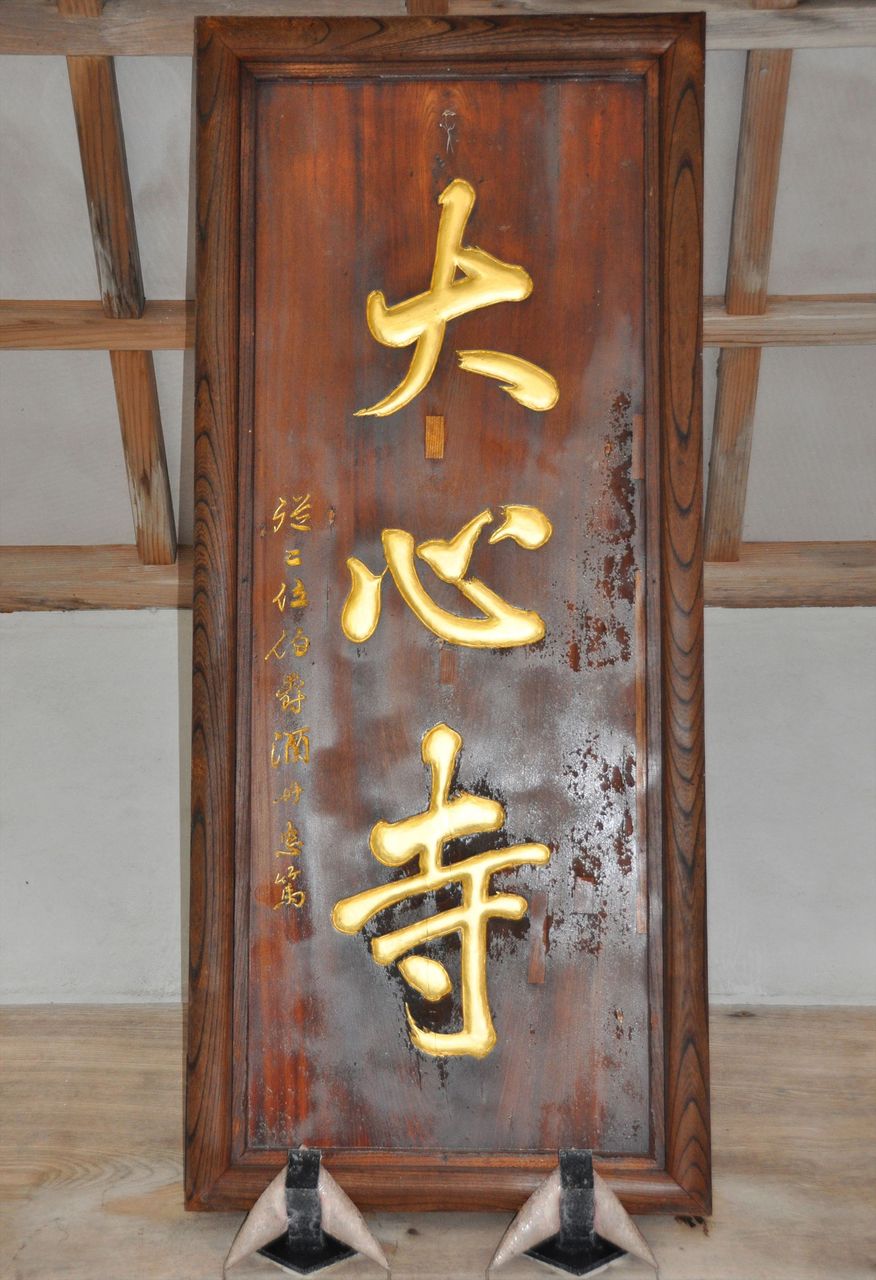 大心寺
従二位伯爵酒井忠篤